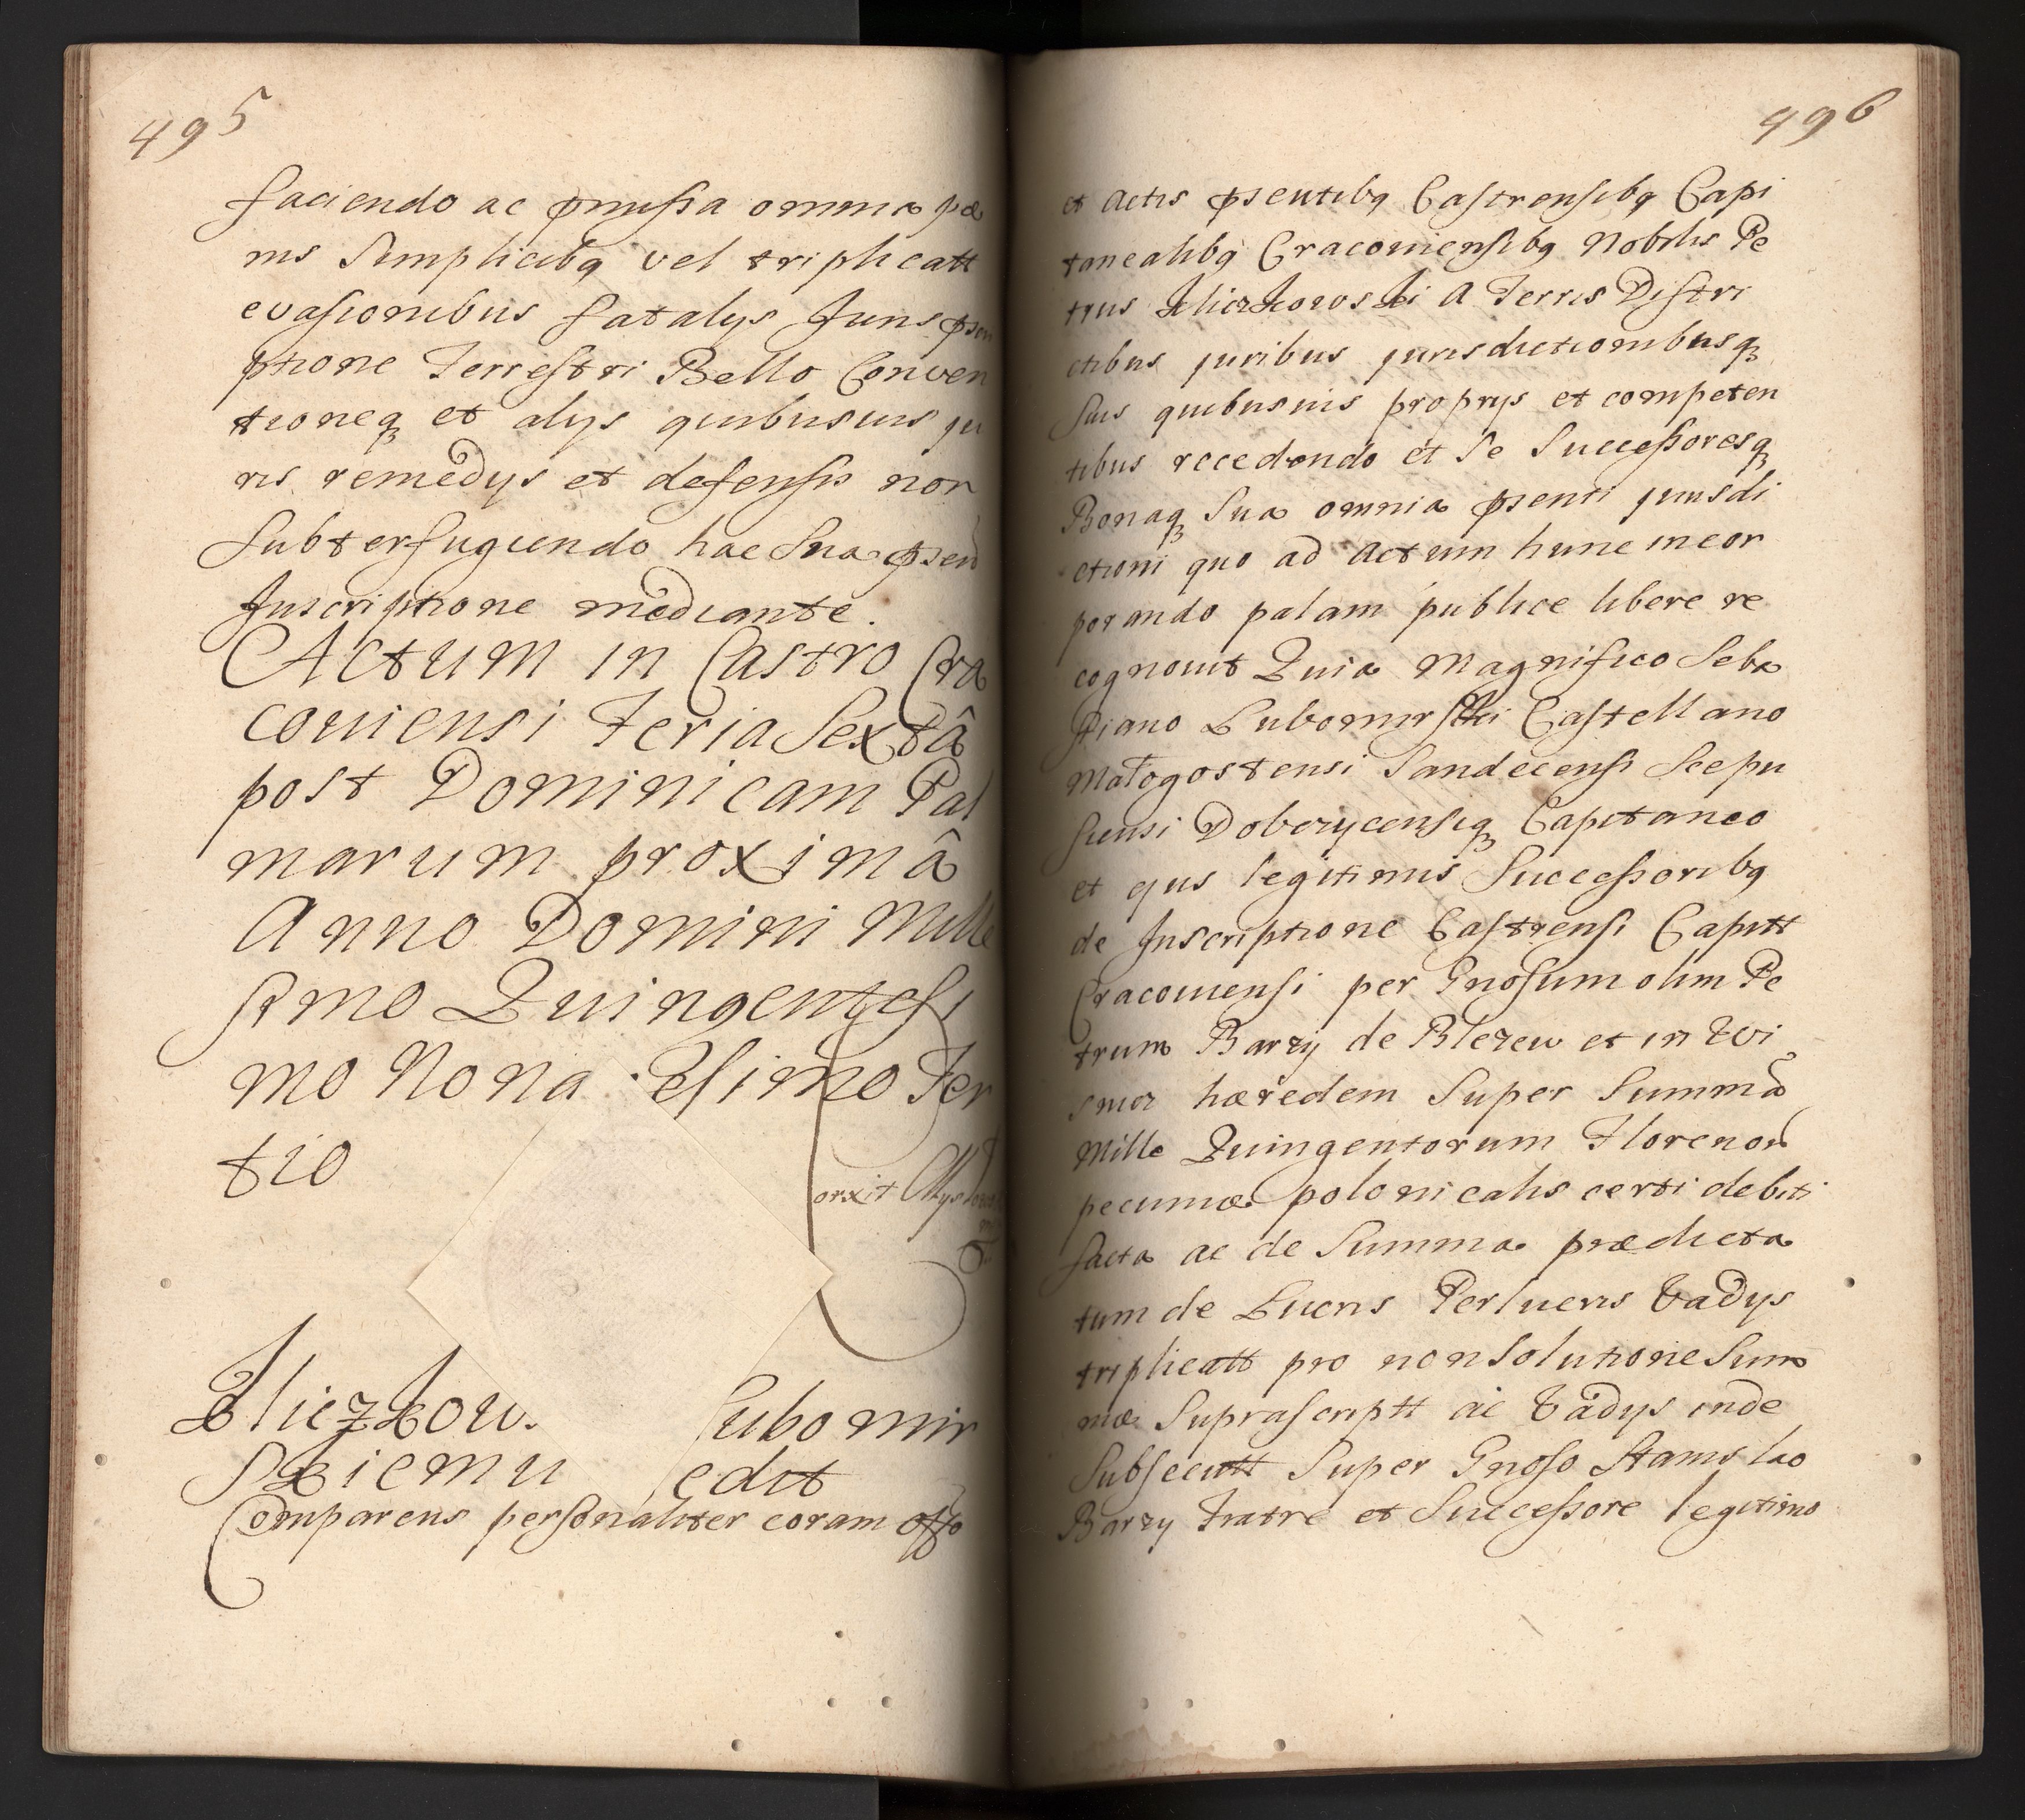 495
faciendo ac pmissa omnia pæ
nis Simplicibq vel triplicatt
evasionibus fatalys Juris pscri
ptione Terrestri Bello Conven
tioneq et alys quibusuis ju
ris remedys et defensis non
Subterfugiendo hac Sua psen
Inscriptione mediante.
Actum in Castro Cra
couiensi Feria Sextâ
post Dominicam Pal
marum proximâ
Anno Domini Mille
simo Quingentesi
mo Nona gesimo Ter
tio
orxit
Kliczkow.
Lubomir
skiemu
edit
Comparens personaliter coram offo
496
et actis psentibq Castrensibq Capi
tanealibq Cracouiensibq Nobilis Pe
trus Kliczkowski A Terris Distri
ctibus juribus jurisdictionibusq
Suis quibusuis proprys et competen
tibus recedendo et Se Successoresq
Bonaq Sua omnia psenti jurisdi
ctioni quo ad actum hunc incor
porando palam publice libere re
cognouit Quia Magnifico Seba
stiano Lubomirski Castellano
Małogostensi Sandecensi Scepu
siensi Dobczycensiq Capitaneo
et ejus legitimis Successoribq
de Inscriptione Castrensi Capitt
Cracouiensi per Gnosum olim Pe
trum Barzy de Blozew et in Wi
snicz hæredem Super Summã
Mille Quingentorum Florenor
pecuniæ polonicalis certi debiti
facta ac de Summa prædicta
tum de Lucris Perlucris Vadys
triplicatt pro non Solutione Sum
mæ Suprascriptt ac Vadys inde
Subsecutt Super Gnoso Stanislao
Barzy Fratre et Successore legitimo